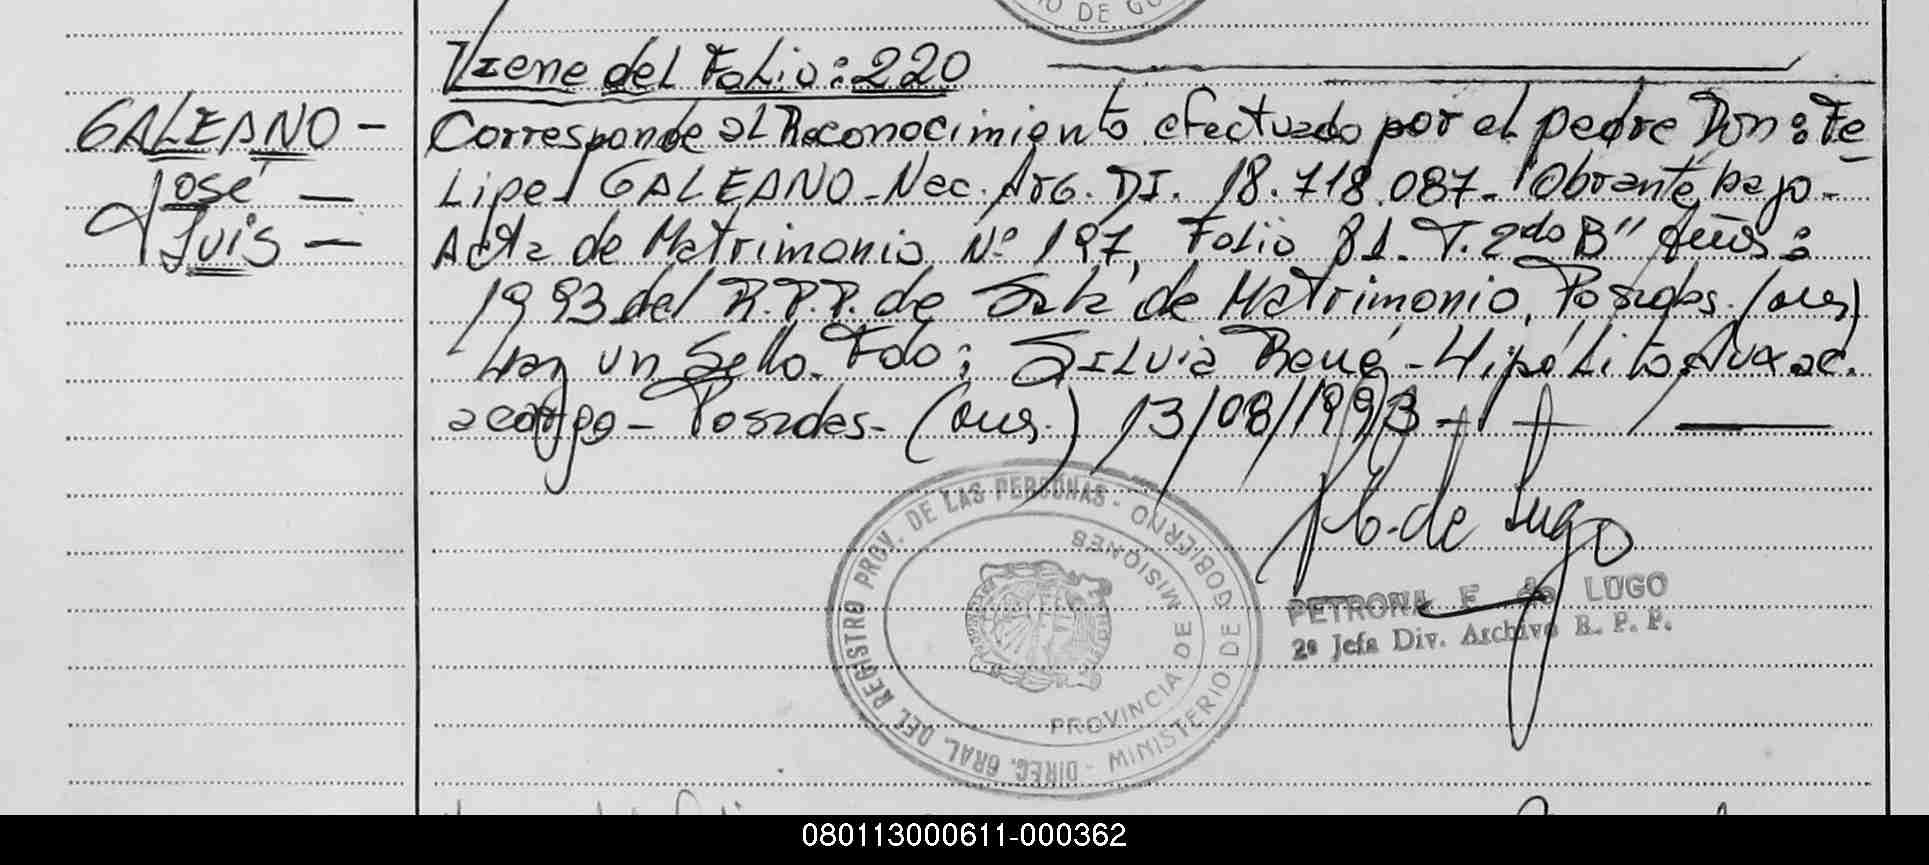 Viene del Folio: 220
GALEANO -
José -
Luis -
Corresponde al Reconocimiento efectuado por el padre Don: Fe
Lipe GALEANO - Nac. Arg. DI. 18.718.087 - Obrante bajo -
Acta de Matrimonio Nº 197, Folio 81. T. 2do B" Años:
1993 del R.P.P. de de Matrimonio, Posadas. (Mis)
Hay un Sello. Fdo: Silvia René - Hipólito Aux ac.
a cargo - Posadas - (Mis.) 13/08/1993 -
P. de Lugo
DIREC. GRAL. DEL REGISTRO PROV. DE LAS PERSONAS - MINISTERIO DE GOBIERNO
PROVINCIA DE MISIONES
PETRONA F. de LUGO
2ª Jefa Div. Archivo R. P. P.
080113000611-000362